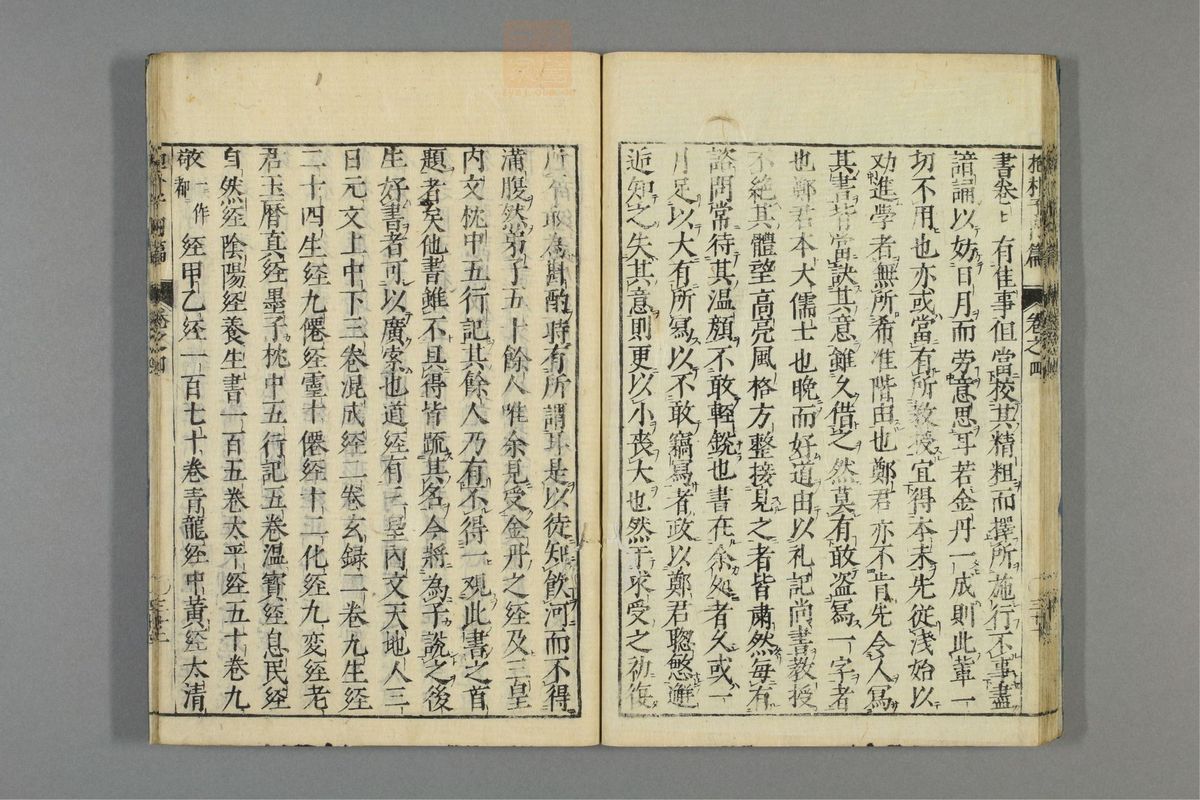 書卷
有佳事但當校其精粗而擇所施行不事盡
諳誦以妨日月而労意思耳若金丹一成則此輩一
切不用也亦或當有所教授宜得本末先從浅始以
劝進學者無所希准階由也鄭君亦不肯先令人寫
其書皆當訣其意雖久借之然莫有敢盗寫一字者
也鄭君本大儒士也晩而好道由以礼記尚書教授
不絶其體望高亮風格方整接見之者皆肅然每有
諮問常待其温顔不敢輕鋭也書在余処者久或一
月足以大有所寫以不敢竊寫者政以鄭君聡慜邂
逅知之失其意則更以小喪大也然于求受之初復
所不敢為斟酌時有所謂耳是以徒知飲河而不得
满腹然弟子五十餘人唯余見受金丹之経及三皇
内文枕中五行記其餘人乃有不得一覌此書之首
題者矣他書雖不具得皆疏其名今將為子說之後
生好書者可以廣索也道経有三皇内文天地人三
日元文上中下三卷混成経二卷玄録二卷九生経
二十四生経九僊経霊卜僊経十二化経九変経老
君玉暦真経墨子枕中五行記五卷温寳経息民経
自然経陰陽経養生書一百五卷太平経五十卷九
敬一作都経甲乙経一百七十卷青龍経中黄経太清
卷之四